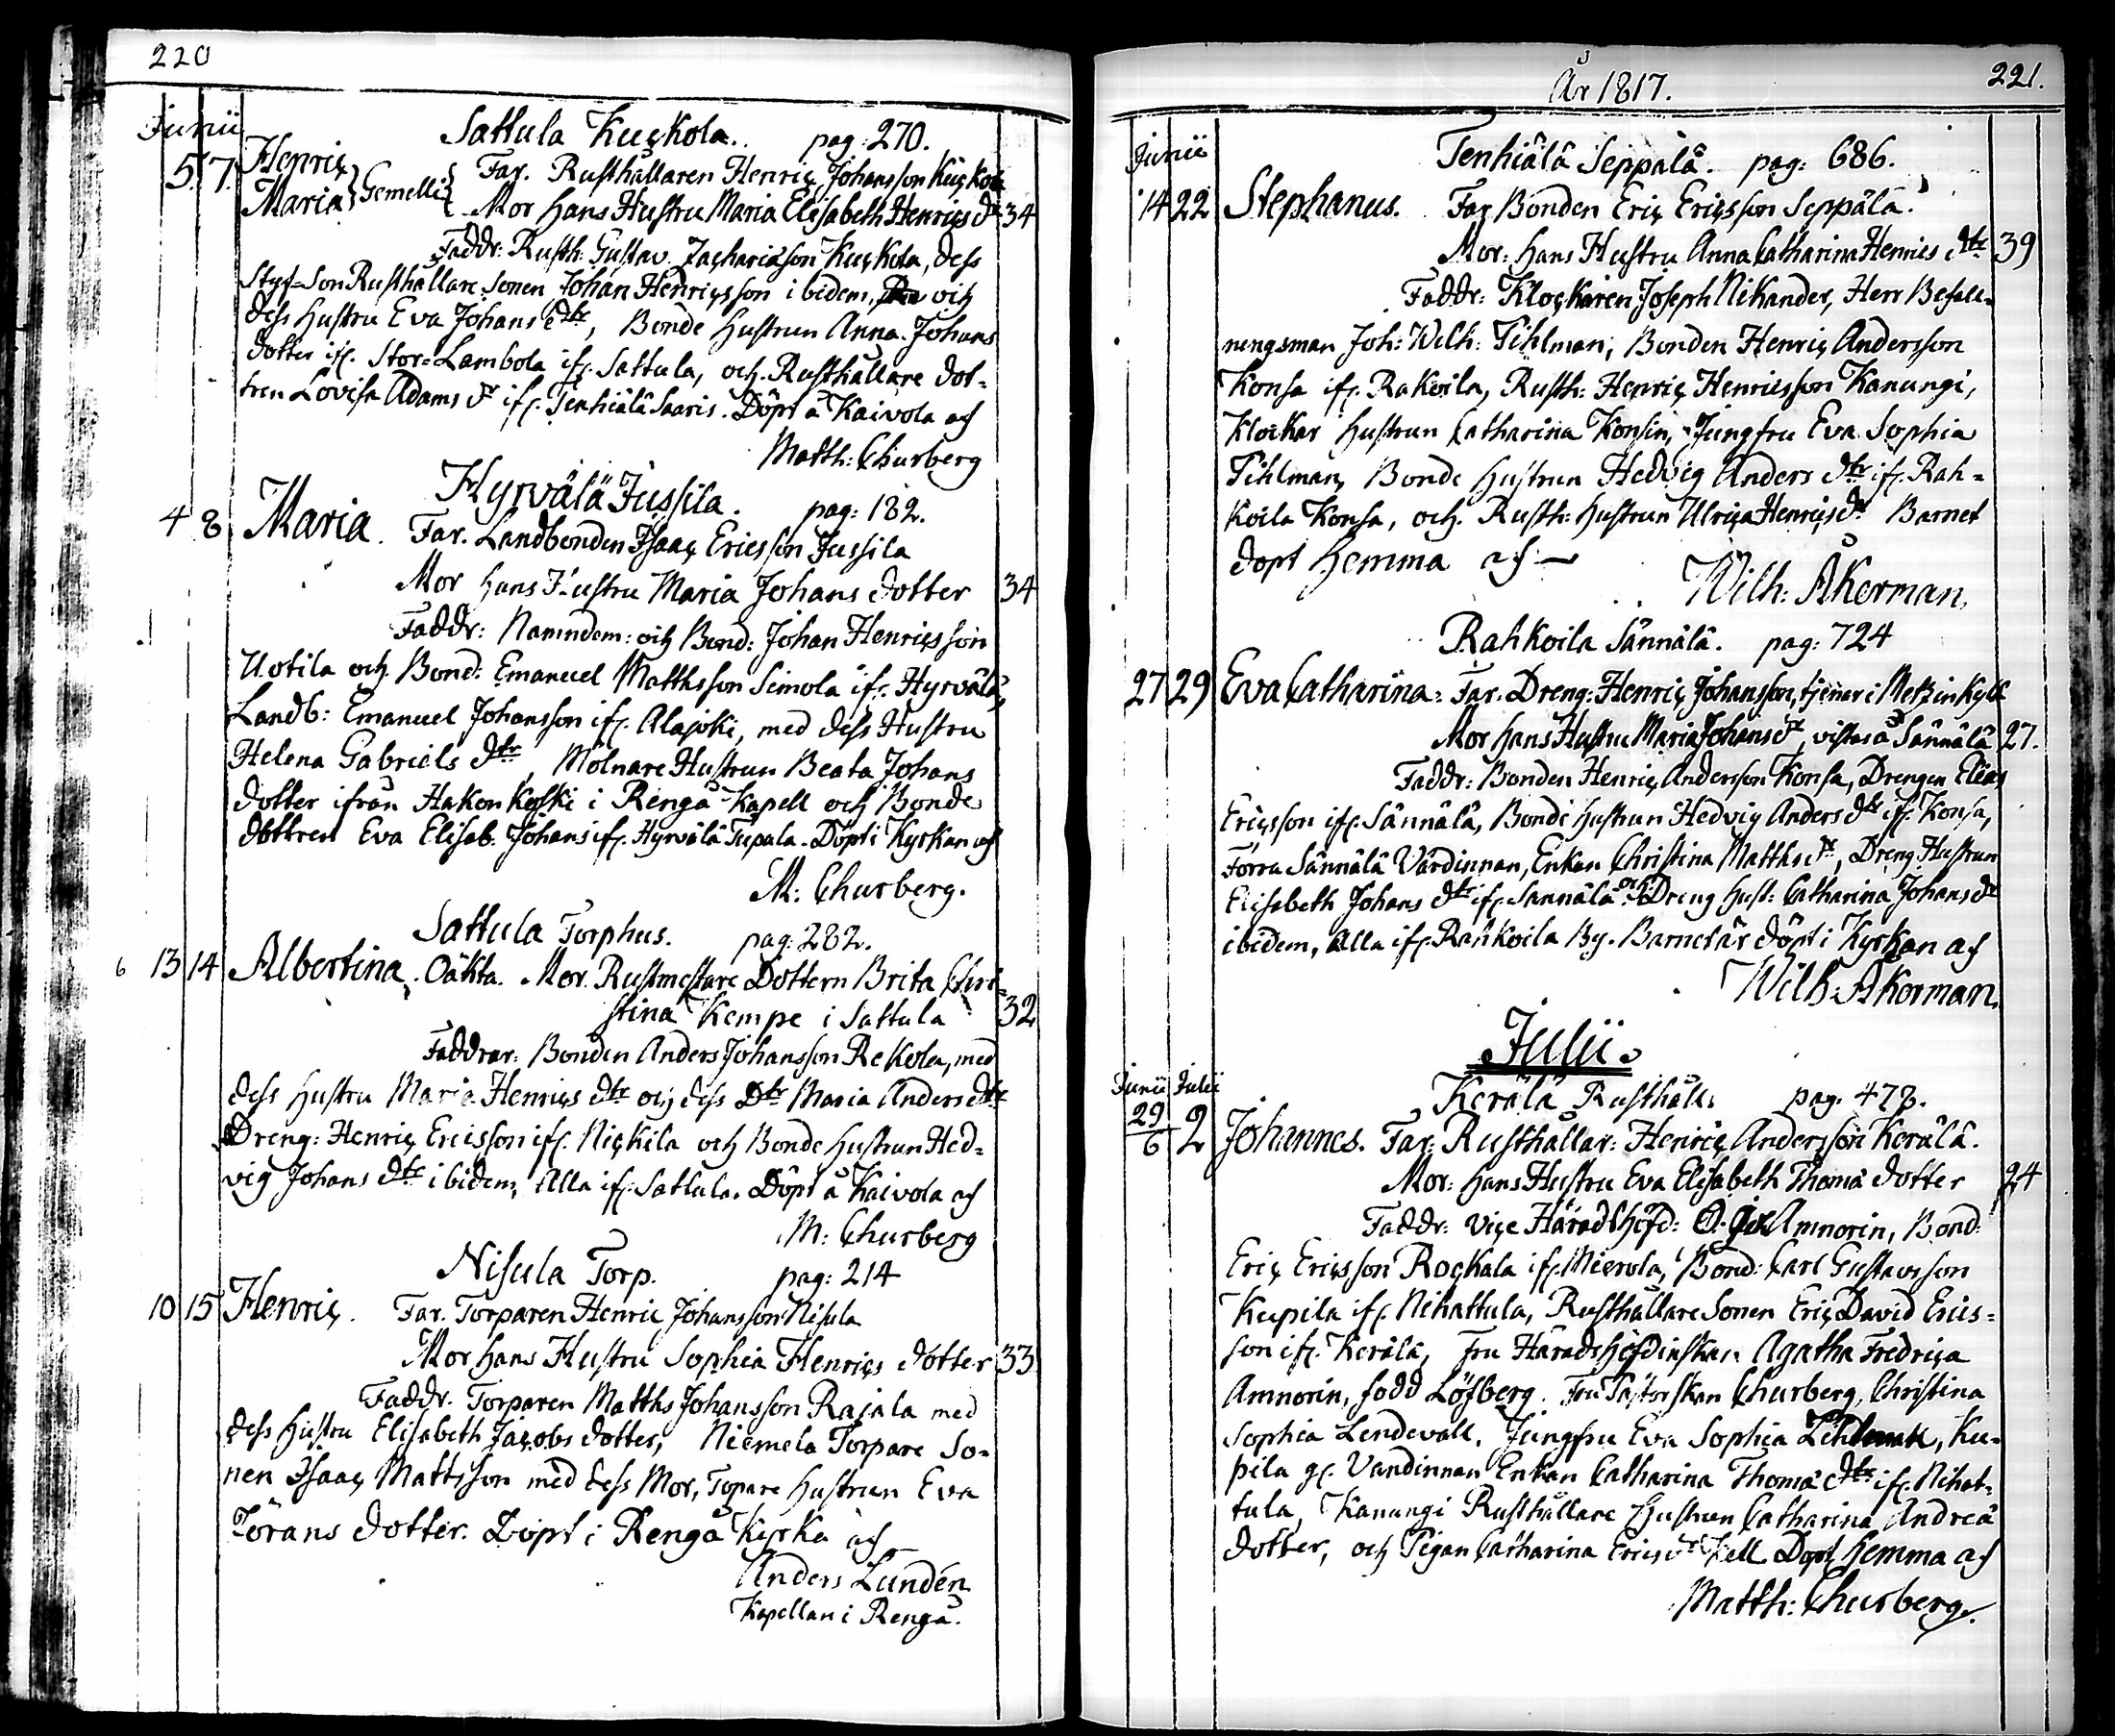 220
Junii
Sattula Kuckola. pag: 270.
5. 7. Henric
Maria } Gemelli { Far. Rusthållaren Henric Johansson Kuckola
Mor Hans Hustru Maria Elisabeth Henrics dr 34
Faddr: Rusth: Gustav Zachariæson Kuckola, dess
Styf-Son Rusthållare Sonen Johan Henricsson ibidem, och
dess Hustru Eva Johans dtr, Bonde Hustrun Anna Johans
dotter ifr. Stor-Lambola ifr. Sattula, och Rusthållare dot-
tren Lovisa Adams dr ifr. Tenhiälä Saaris. Döpt å Kaivola af
Matth: Churberg
Hyrvälä Jussila. pag: 182.
4 8 Maria. Far. Landbonden Isaac Ericsson Jussila
Mor Hans Hustru Maria Johans dotter 34
Faddr: Nämndem: och Bond: Johan Henricsson
Uotila och Bond: Emanuel Matthsson Simola ifr. Hyrvälä,
Landb: Emanuel Johansson ifr. Alajoki, med dess Hustru
Helena Gabriels dtr, Mölnare Hustrun Beata Johans
dotter ifrån Hakon Koski i Rengå Kapell och Bonde
dottren Eva Elisab. Johans ifr. Hyrvälä Tupala. Döpt i Kyrkan af
M: Churberg.
Sattula Torphus. pag: 282.
6 13 14 Albertina. Oäkta. Mor. Rustmestare Dottern Brita Chri-
stina Kempe i Sattula 32
Faddrar: Bonden Anders Johansson Rekola, med
dess Hustru Maria Henrics dtr och dess Dtr Maria Anders dtr
Dreng: Henric Ericsson ifr. Nickila och Bonde Hustrun Hed-
vig Johans dtr ibidem, Alla ifr. Sattula. Döpt å Kaivola af
M: Churberg
Nisula Torp. pag: 214
10 15 Henric. Far. Torparen Henric Johansson Nisula
Mor Hans Hustru Sophia Henrics dotter 33
Faddr. Torparen Matths Johansson Rajala med
dess Hustru Elisabeth Jacobs dotter, Niemela Torpare So-
nen Isaac Mattsson med dess Mor, Topare Hustrun Eva
Jörans dotter. Döpt i Rengå Kyrka af
Anders Lundén
Kapellan i Rengå.
År 1817. 221.
Junii
Tenhiälä Seppälä. pag: 686.
14 22 Stephanus. Far Bonden Eric Ericsson Seppälä.
Mor: Hans Hustru Anna Catharina Henrics dtr 39
Faddr: Klockaren Joseph Nikander, Herr Befall-
nengsman Joh: Wilh: Tihlman, Bonden Henric Andersson
Konsa ifr. Rakoila, Rusth: Henric Henricsson Kanungi,
Klockar Hustrun Catharina Konsin, Jungfru Eva Sophia
Tihlman, Bonde Hustrun Hedvig Anders dtr ifr. Rah-
koila Konsa, och Rusth: Hustrun Ulrica Henrics dr Barnet
döpt Hemma af —
Wilh: Åkerman.
Rahkoila Sännälä. pag: 724
27 29 Eva Catharina: Far. Dreng: Henric Johansson, tjenar i Metzinkylä
Mor Hans Hustru Maria Johans dr, vistas å Sännälä 27.
Faddr: Bonden Henric Andersson Konsa, Drengen Elias
Ericsson ifr. Sännälä, Bonde Hustrun Hedvig Anders dtr ifr. Konsa,
Förra Sännälä Värdinnan, Enkan Christina Matths dr, Dreng Hustrun
Elisabeth Johans dtr ifr. Sännälä och Dreng Hust: Catharina Johans dr
ibidem, Alla ifr. Rahkoila By. Barnet är döpt i Kyrkan af
Wilh: Åkerman.
Julii.
Junii Julii
Kerälä Rusthåll. pag. 478.
29
6 2 Johannes. Far: Rusthållar: Henric Andersson Kerälä.
Mor: Hans Hustru Eva Elisabeth Thomæ dotter 24
Faddr: Vice Häradshöfd: Amnorin, Bond:
Eric Ericsson Rockala ifr. Mierola, Bond: Carl Gustavsson
Kupila ifr. Nihattula, Rusthållare Sonen Eric David Erics-
son ifr. Kerälä, Fru Häradshöfdinskan Agatha Fredrica
Amnorin, född Löfberg. Fru Pastorskan Churberg, Christina
Sophia Lendevall, Jungfru Eva Sophia Tihlman, Ku-
pila gl. Värdinnan Enkan Catharina Thomæ dtr ifr. Nihat-
tula, Kanungi Rusthållare Hustrun Catharina Andreæ
dotter, och Pigan Catharina Erics dr Döpt Hemma af
Matth: Churberg.